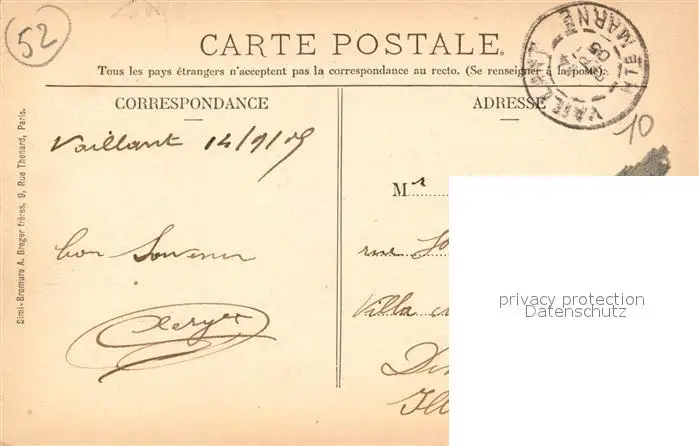 52
CARTE POSTALE.
Tous les pays étrangers n'acceptent pas la correspondance au recto. (Se renseigner à la poste).
CORRESPONDANCE
ADRESSE
VAILLANT
HTE MARNE
05
10
Vaillant 14/9/05
Mr
bon Souvenir
rue
Villa
privacy protection
Datenschutz
Simi-Bromure A. Breger frères, 9, Rue Thenard, Paris.